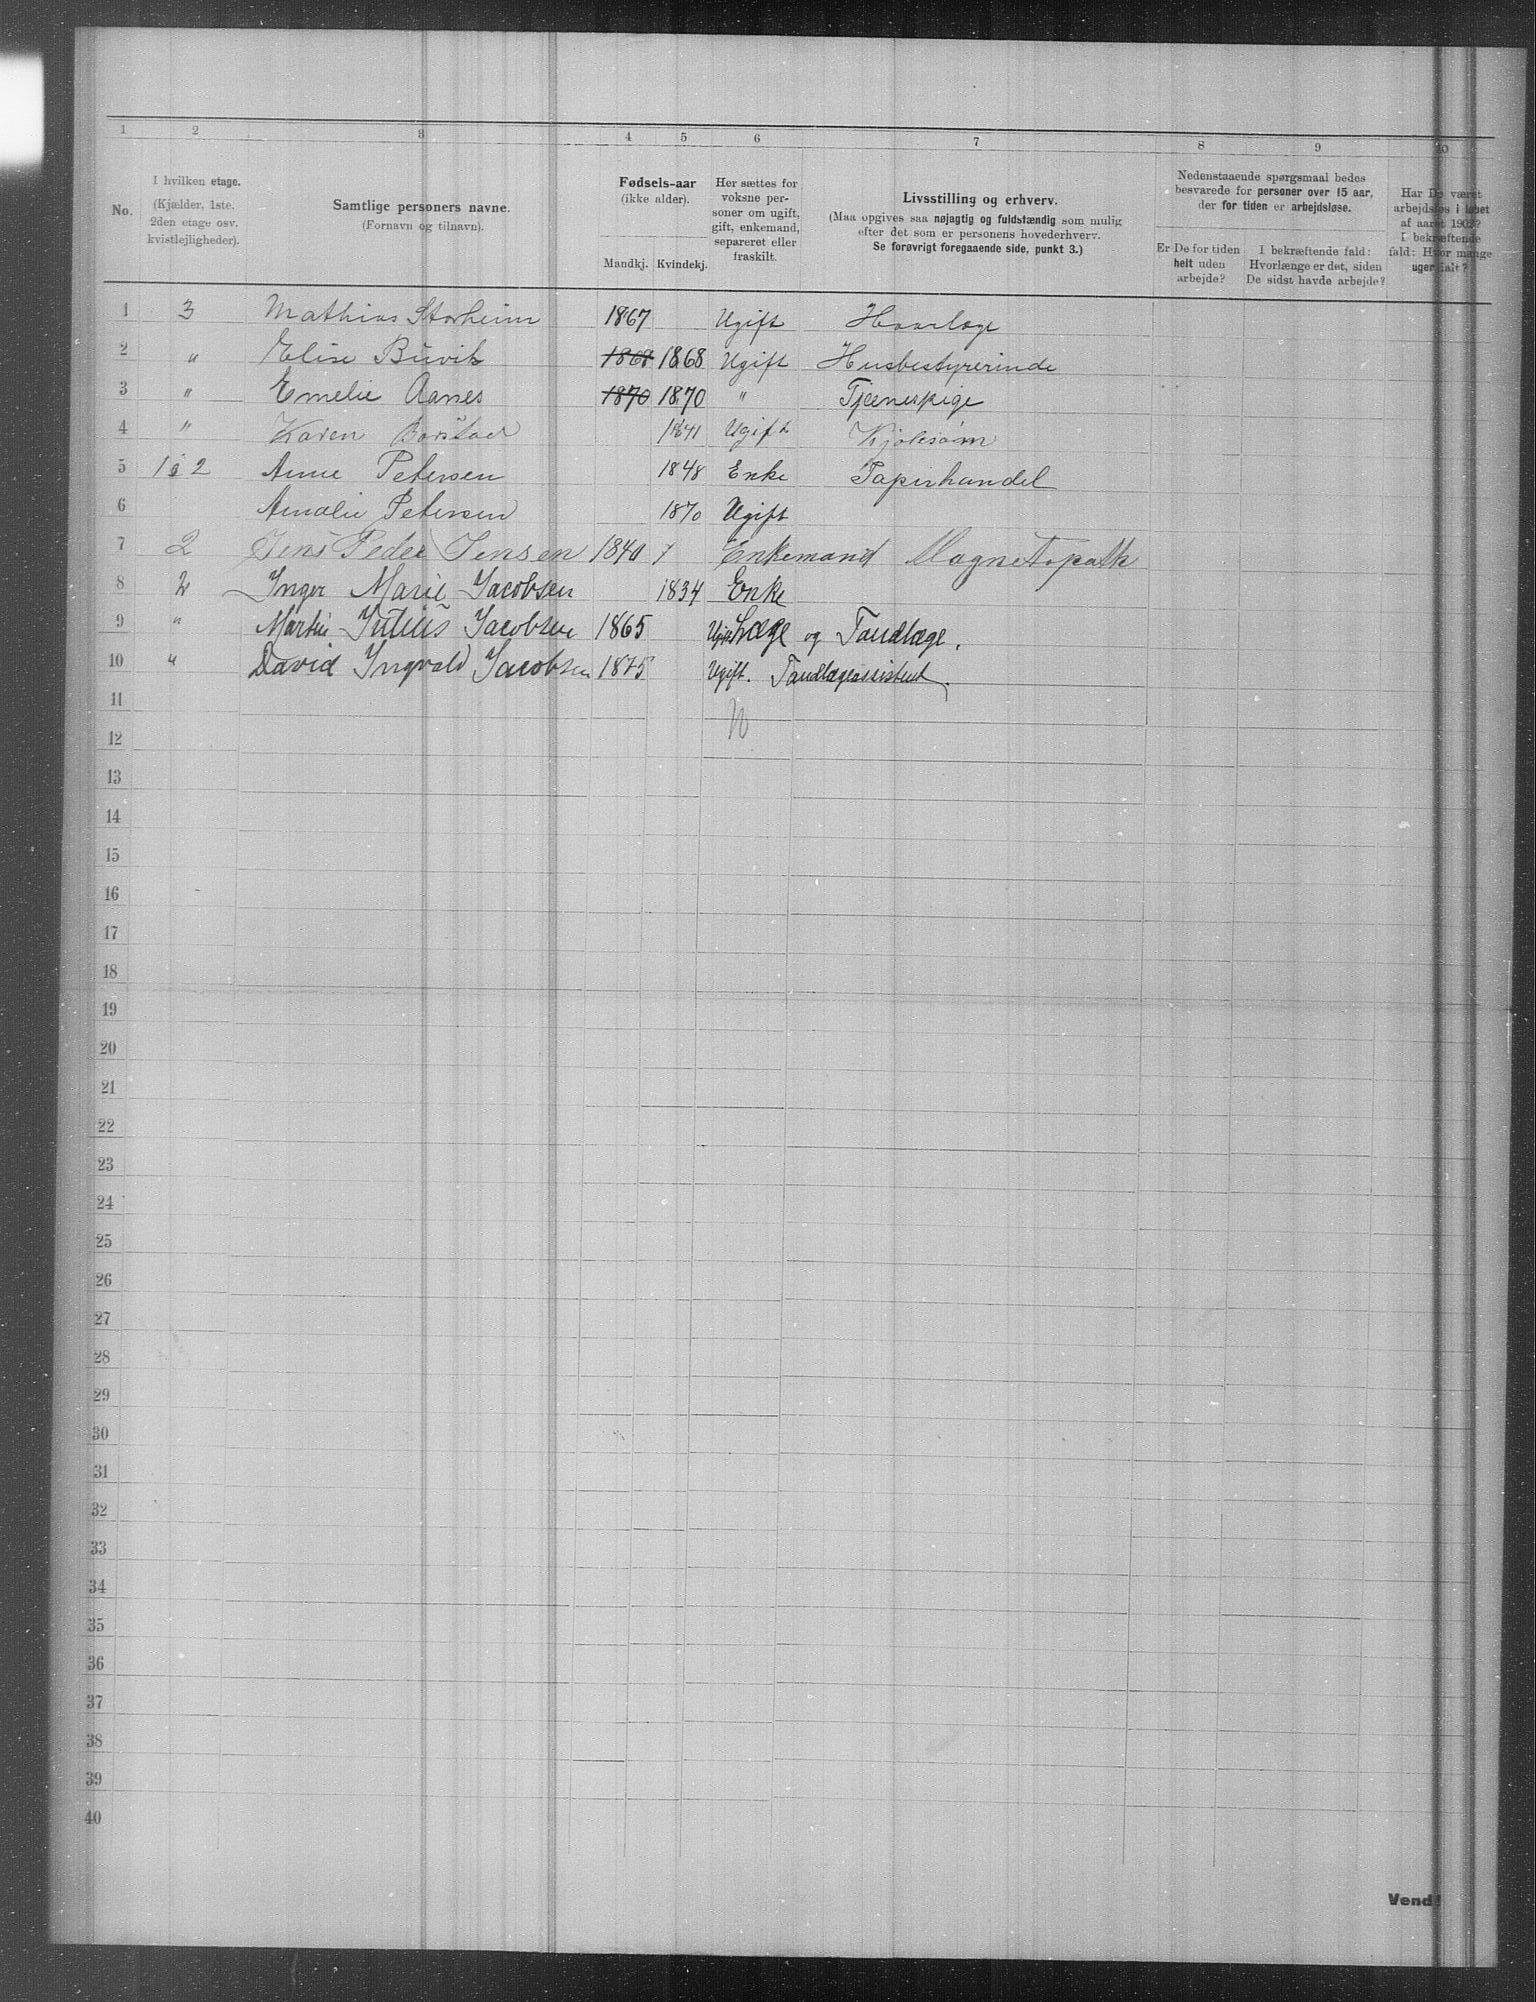 1 2 3 4 5 6 7 8 9 10
No.
I hvilken etage.
(Kjælder, 1ste,
2den etage osv.
kvistlejligheder).
Samtlige personers navne.
(Fornavn og tilnavn).
Fødsels-aar
(ikke alder).
Mandkj. Kvindekj.
Her sættes for
voksne per-
soner om ugift,
gift, enkemand,
separeret eller
fraskilt.
Livsstilling og erhverv.
(Maa opgives saa nøjagtig og fuldstændig som mulig
efter det som er personens hovederhverv.
Se forøvrigt foregaaende side, punkt 3.)
Nedenstaaende spørgsmaal bedes
besvarede for personer over 15 aar,
der for tiden er arbejdsløse.
Er De for tiden
helt uden
arbejde?
I bekræftende fald:
Hvorlænge er det, siden
De sidst havde arbejde?
Har De været
arbejdsløs i løbet
af aaret 1902?
I bekræftende
fald: Hvor mange
uger ialt?
1 3 Mathias Storheim 1867 Ugift
2 " Elise Buvik 1868 1868 Ugift Husbestyrerinde
3 " Emelie Aanes 1870 1870 " Tjenespige
4 " Karen Borstad 1841 Ugift Kjolesøm
5 1 & 2 Anne Petersen 1848 Enke Papirhandel
6 Amalie Petersen 1870 Ugift
7 2 Jens Peder Jensen 1840 Enkemand Magnetopath
8 2 Inger Marie Jacobsen 1834 Enke
9 " Martin Julius Jacobsen 1865 Ugift Læge og Tandlæge.
10 " David Ingvald Jacobsen 1875 Ugift. Tandlægeassistent.
11
12
13
14
15
16
17
18
19
20
21
22
23
24
25
26
27
28
29
30
31
32
33
34
35
36
37
38
39
40
Vend!